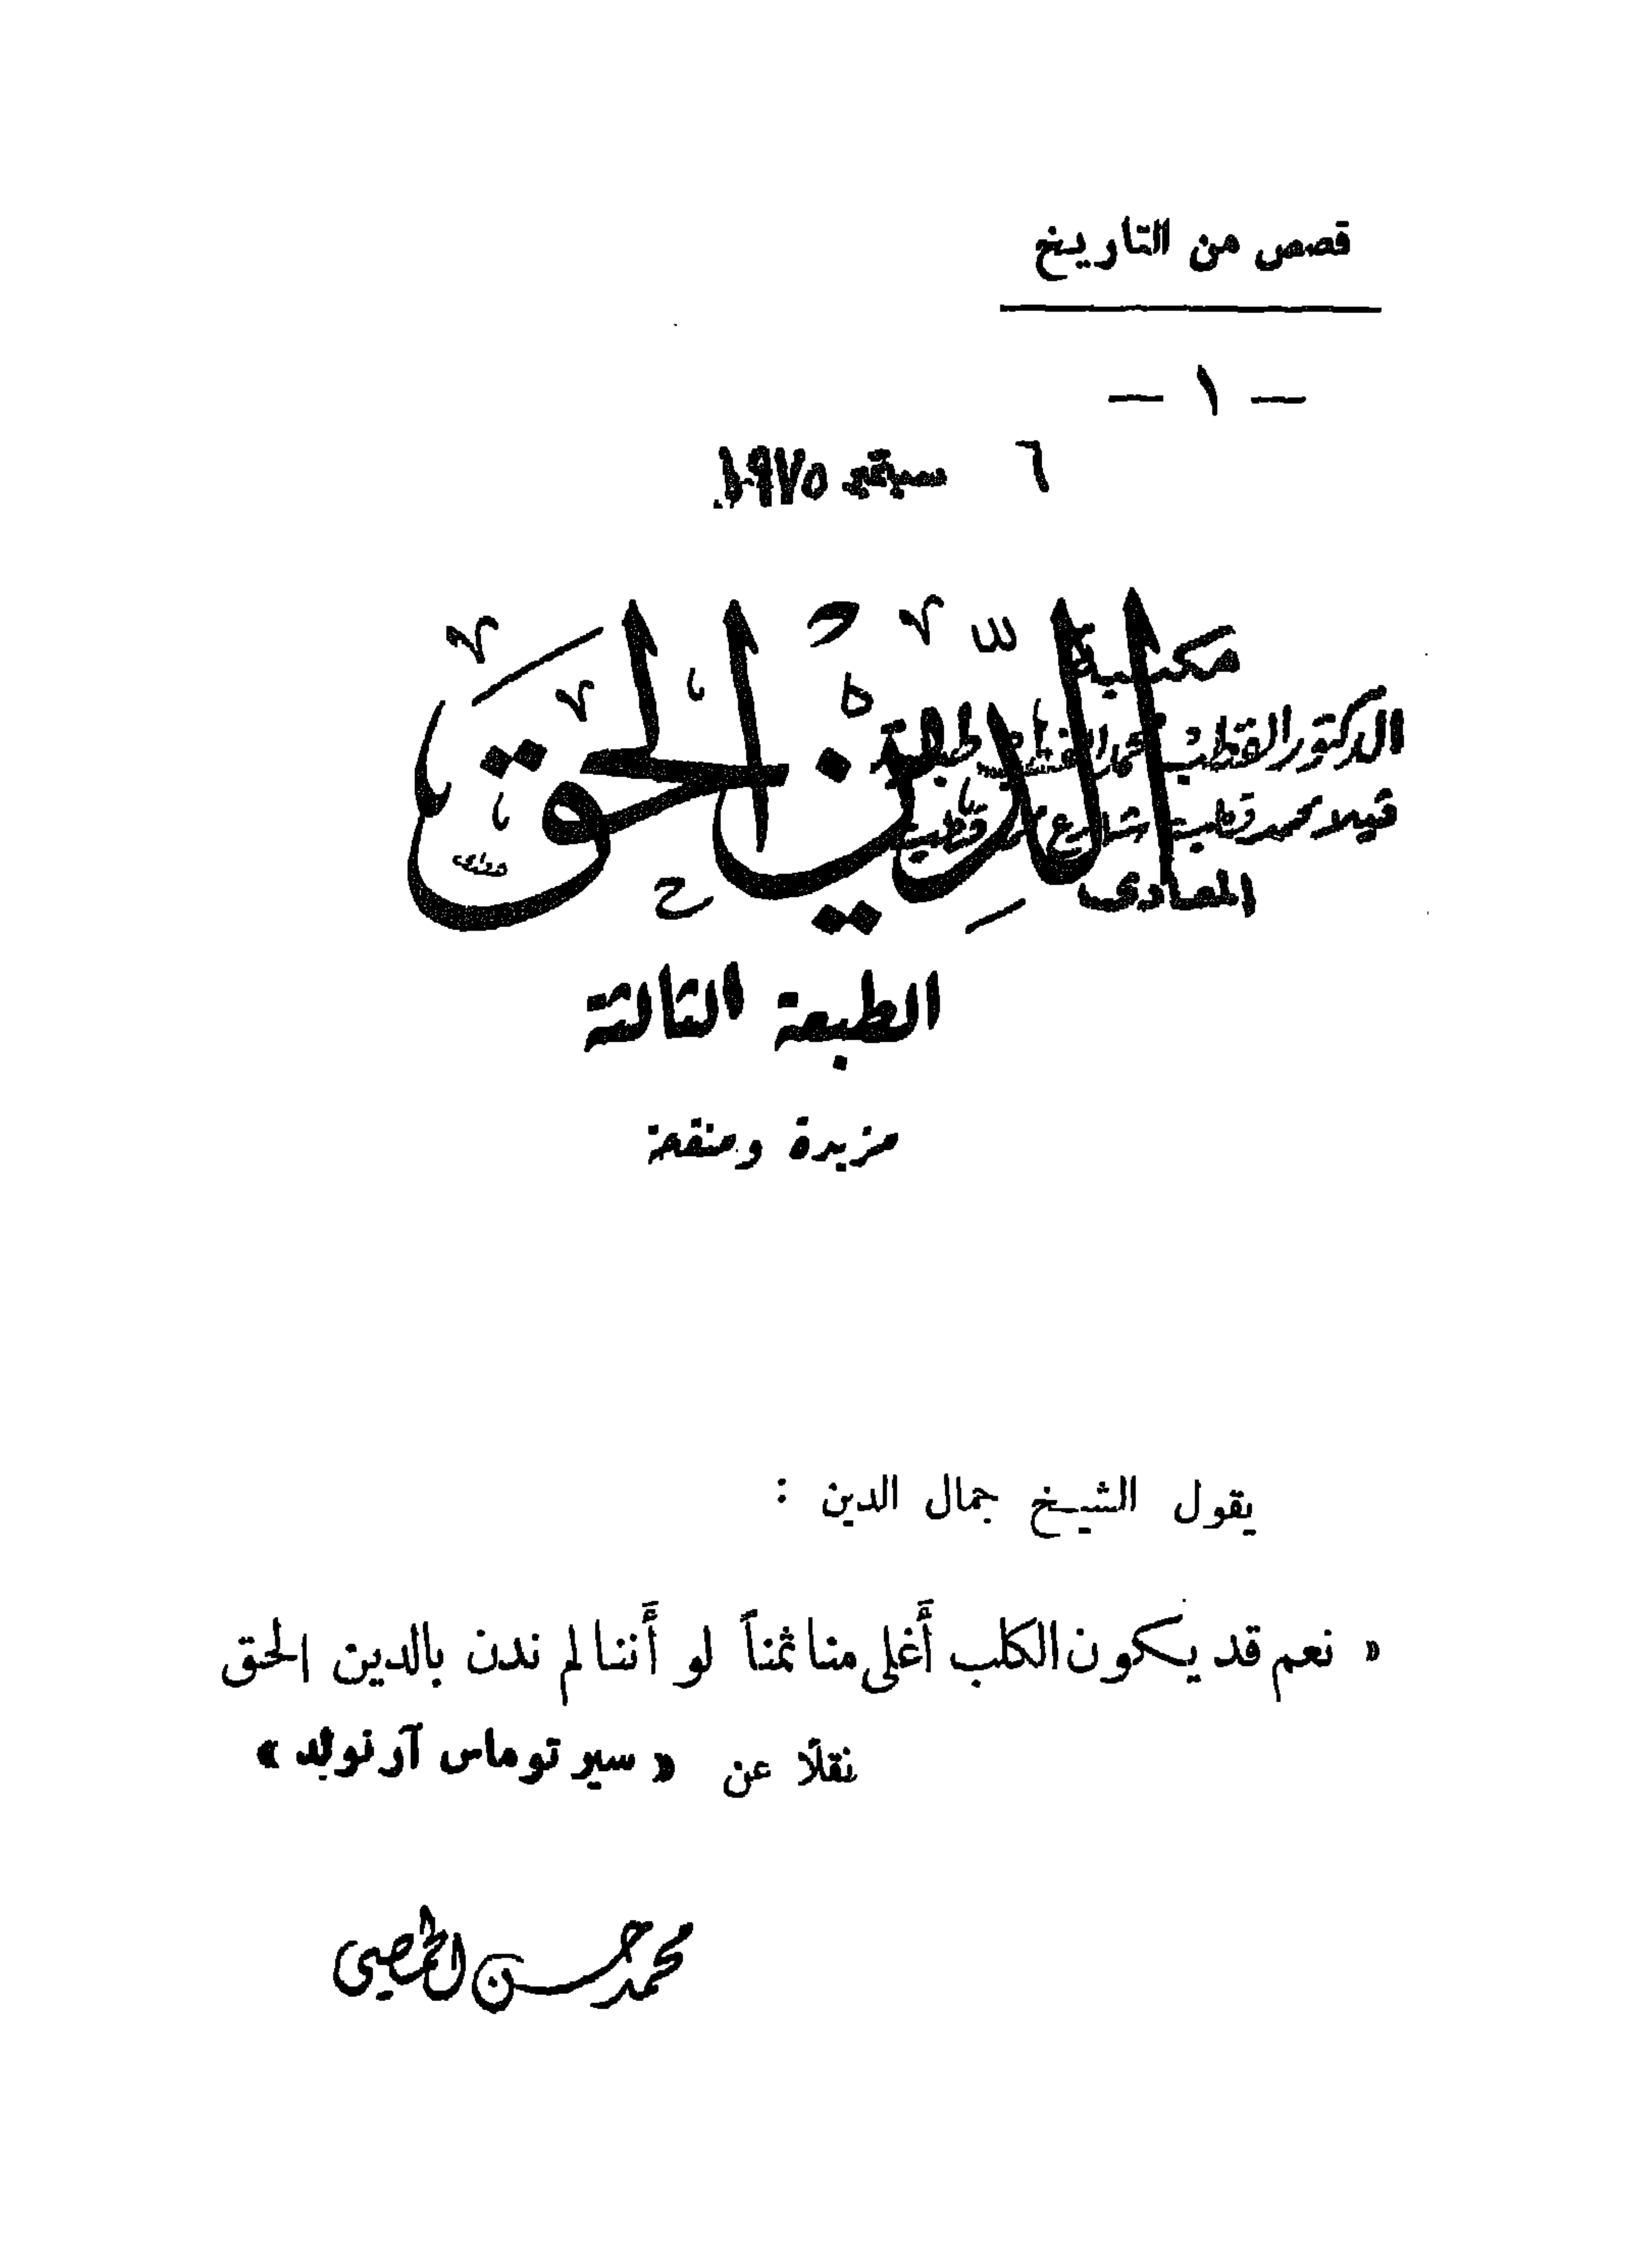 قصص من التاريخ
— ١ —
٦ سبتمبر ١٩٧٥
الدين الحق
مكتبة
الدكتور القطب محمد القطب طبلية
فيلا محمد قطب شارع محمد قطب
المعادى
الطبعة الثالثة
مزيدة ومنقحة
يقول الشيخ جمال الدين :
« نعم قد يكون الكلب أغلى منا ثمناً لو أننا لم ندن بالدين الحق
نقلًا عن « سير توماس آرنولد »
محمد حسن الحمصي